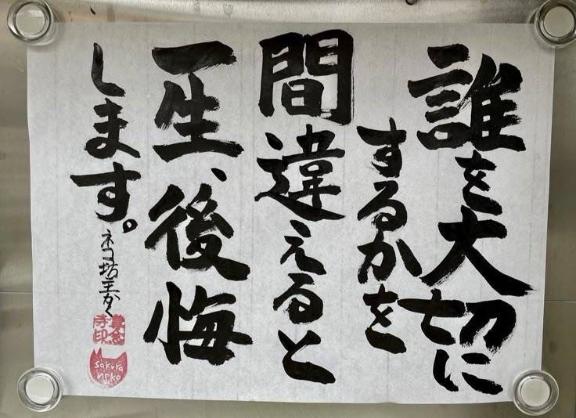 誰を大切に
するかを
間違えると
一生、後悔
します。
ネコ坊主かく
sakura
neko